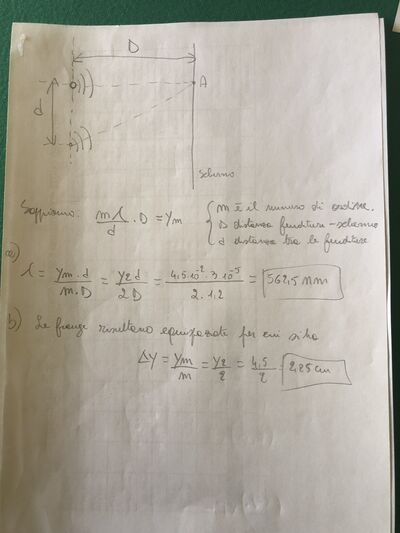 D
A
d
Schermo
Sappiamo: mλ/d · D = ym { m è il numero di ordine.
D distanza fenditure-schermo
d distanza tra le fenditure
a)
λ = ym·d/m·D = y2 d/2D = 4,5·10⁻²·3·10⁻⁵/2·1.2 = 562,5 nm
b) Le frange risultano equispaziate per cui si ha
Δy = ym/m = y2/2 = 4,5/2 = 2,25 cm